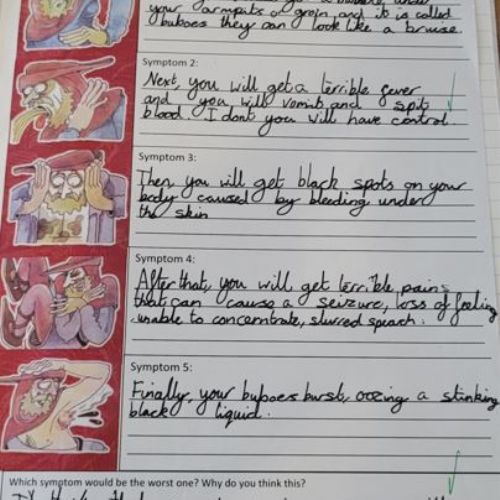 your armpits or groin and it is called
buboes they can look like a bruise.
Symptom 2:
Next, you will get a terrible fever
and you will vomit and spit
blood. I dont you will have control.
Symptom 3:
Then you will get black spots on your
body caused by bleeding under
the skin
Symptom 4:
After that, you will get terrible pains
that can cause a seizure, loss of feeling
unable to concerntrate, slurred speach.
Symptom 5:
Finally, your buboes burst, oozing a stinking
black liquid.
Which symptom would be the worst one? Why do you think this?